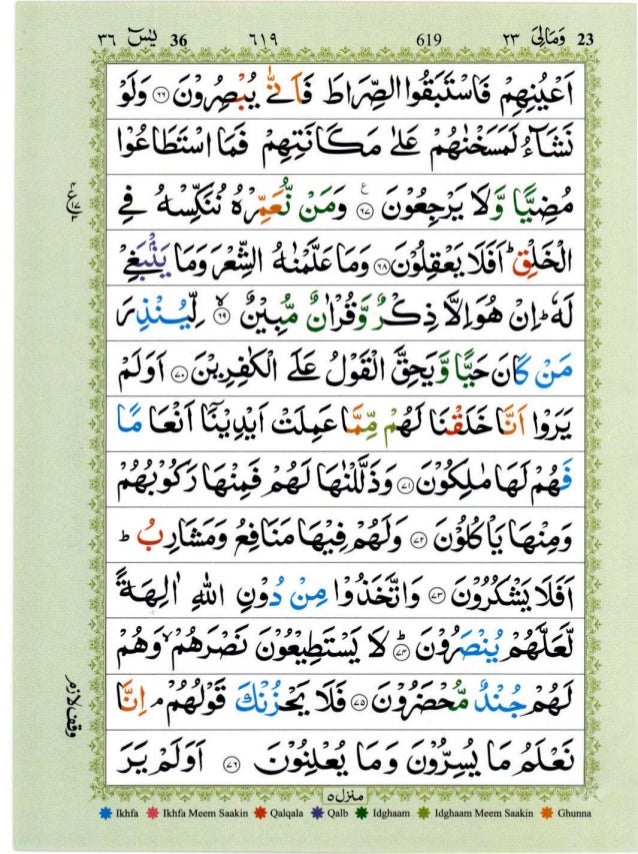 36 يٰسٓ ٣٦
٦١٩
619
23 وَمَالِيَ ٢٣
اَعۡيُنِهِمۡ فَاسۡتَبَقُوا الصِّرَاطَ فَاَنّٰى يُبۡصِرُوۡنَ ﴿۶۶﴾ وَلَوۡ
نَشَآءُ لَمَسَخۡنٰهُمۡ عَلٰى مَكَانَتِهِمۡ فَمَا اسۡتَطَاعُوۡا
مُضِيًّا وَّلَا يَرۡجِعُوۡنَ ﴿۶۷﴾ وَمَنۡ نُّعَمِّرۡهُ نُنَكِّسۡهُ فِى
الۡخَلۡقِؕ اَفَلَا يَعۡقِلُوۡنَ ﴿۶۸﴾ وَمَا عَلَّمۡنٰهُ الشِّعۡرَ وَمَا يَنۡۢبَغِىۡ
لَهٗؕ اِنۡ هُوَ اِلَّا ذِكۡرٌ وَّقُرۡاٰنٌ مُّبِيۡنٌۙ ﴿۶۹﴾ لِّيُنۡذِرَ
مَنۡ كَانَ حَيًّا وَّيَحِقَّ الۡقَوۡلُ عَلَى الۡكٰفِرِيۡنَ ﴿۷۰﴾ اَوَلَمۡ
يَرَوۡا اَنَّا خَلَقۡنَا لَهُمۡ مِّمَّا عَمِلَتۡ اَيۡدِيۡنَاۤ اَنۡعَامًا
فَهُمۡ لَهَا مٰلِكُوۡنَ ﴿۷۱﴾ وَذَلَّلۡنٰهَا لَهُمۡ فَمِنۡهَا رَكُوۡبُهُمۡ
وَمِنۡهَا يَاۡكُلُوۡنَ ﴿۷۲﴾ وَلَهُمۡ فِيۡهَا مَنَافِعُ وَمَشَارِبُؕ
اَفَلَا يَشۡكُرُوۡنَ ﴿۷۳﴾ وَاتَّخَذُوۡا مِنۡ دُوۡنِ اللّٰهِ اٰلِهَةً
لَّعَلَّهُمۡ يُنۡصَرُوۡنَؕ ﴿۷۴﴾ لَا يَسۡتَطِيۡعُوۡنَ نَصۡرَهُمۡۙ وَهُمۡ
لَهُمۡ جُنۡدٌ مُّحۡضَرُوۡنَ ﴿۷۵﴾ فَلَا يَحۡزُنۡكَ قَوۡلُهُمۡۘ اِنَّا
نَعۡلَمُ مَا يُسِرُّوۡنَ وَمَا يُعۡلِنُوۡنَ ﴿۷۶﴾ اَوَلَمۡ يَرَ
وقف لازم
منزل ٥
Ikhfa Ikhfa Meem Saakin Qalqala Qalb Idghaam Idghaam Meem Saakin Ghunna